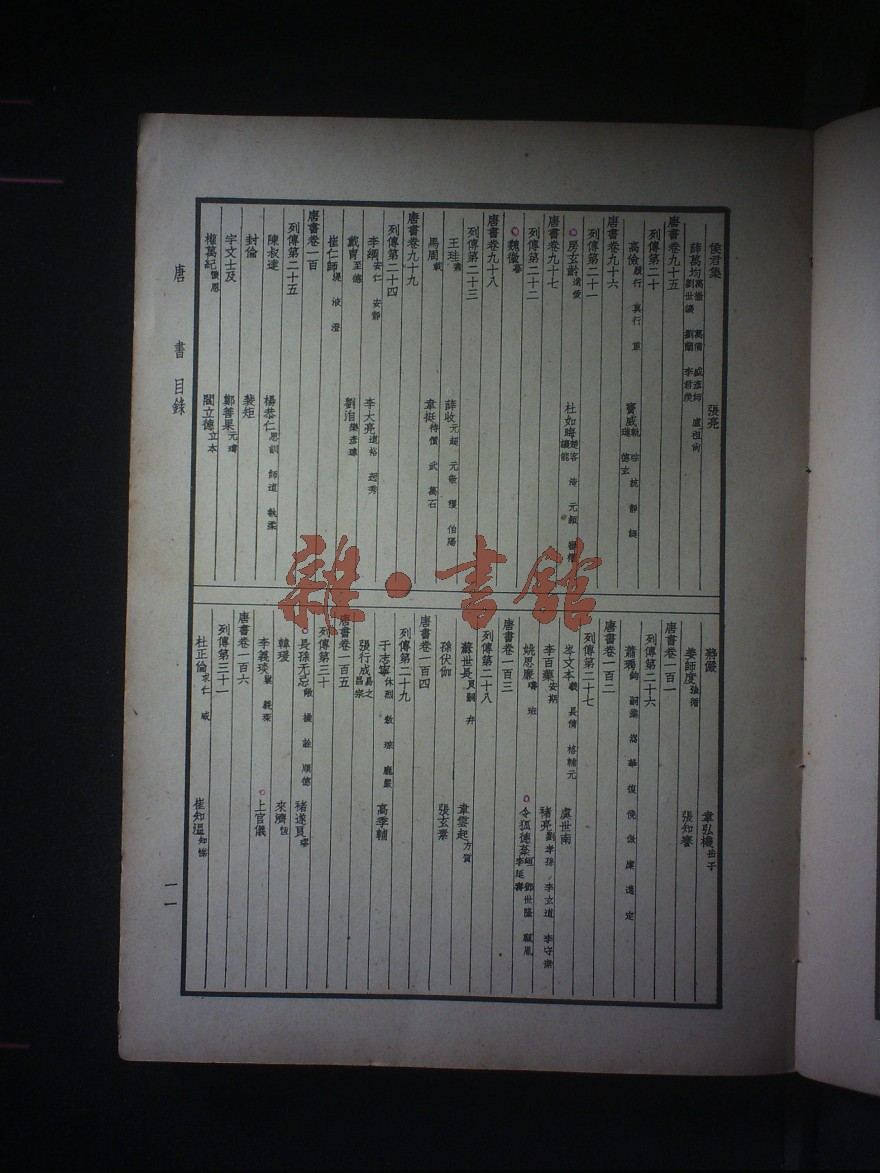 侯君集 張亮
薛萬均 萬徹 萬備 盛彥師 盧祖尚 劉世讓 劉蘭 李君羨
唐書卷九十五
列傳第二十
高儉 履行 真行 重 竇威 軌 琮 抗 靜 誕 璡 德玄
唐書卷九十六
列傳第二十一
房玄齡 遺愛 杜如晦 楚客 淹 元穎 審權 讓能
唐書卷九十七
列傳第二十二
魏徵 謩
唐書卷九十八
列傳第二十三
王珪 燾 薛收 元超 元敬 稷 伯陽
馬周 載 韋挺 待價 武 萬石
唐書卷九十九
列傳第二十四
李綱 安仁 安靜 李大亮 道裕 迥秀
戴胄 至德 劉洎 樂彥瑋
崔仁師 湜 液 澄
唐書卷一百
列傳第二十五
陳叔達 楊恭仁 思訓 師道 執柔
封倫 裴矩
宇文士及 鄭善果 元璹
權萬紀 懷恩 閻立德 立本
蔣儼 韋弘機 岳子
姜師度 強循 張知謇
唐書卷一百一
列傳第二十六
蕭瑀 鈞 嗣業 嵩 華 復 俛 倣 廩 遘 定
唐書卷一百二
列傳第二十七
岑文本 羲 長倩 格輔元 虞世南
李百藥 安期 褚亮 劉孝孫 李玄道 李守素
姚思廉 璹 班 令狐德棻 峘 鄧世隆 顧胤 李延壽
唐書卷一百三
列傳第二十八
蘇世長 良嗣 弁 韋雲起 方質
孫伏伽 張玄素
唐書卷一百四
列傳第二十九
于志寧 休烈 敖 琮 龐嚴 高季輔
張行成 易之 昌宗
唐書卷一百五
列傳第三十
長孫无忌 敞 操 詮 順德 褚遂良 璆
韓瑗 來濟 恆
李義琰 巢 義琛 上官儀
唐書卷一百六
列傳第三十一
杜正倫 求仁 咸 崔知溫 知悌
唐書 目錄
一一
雜·書館